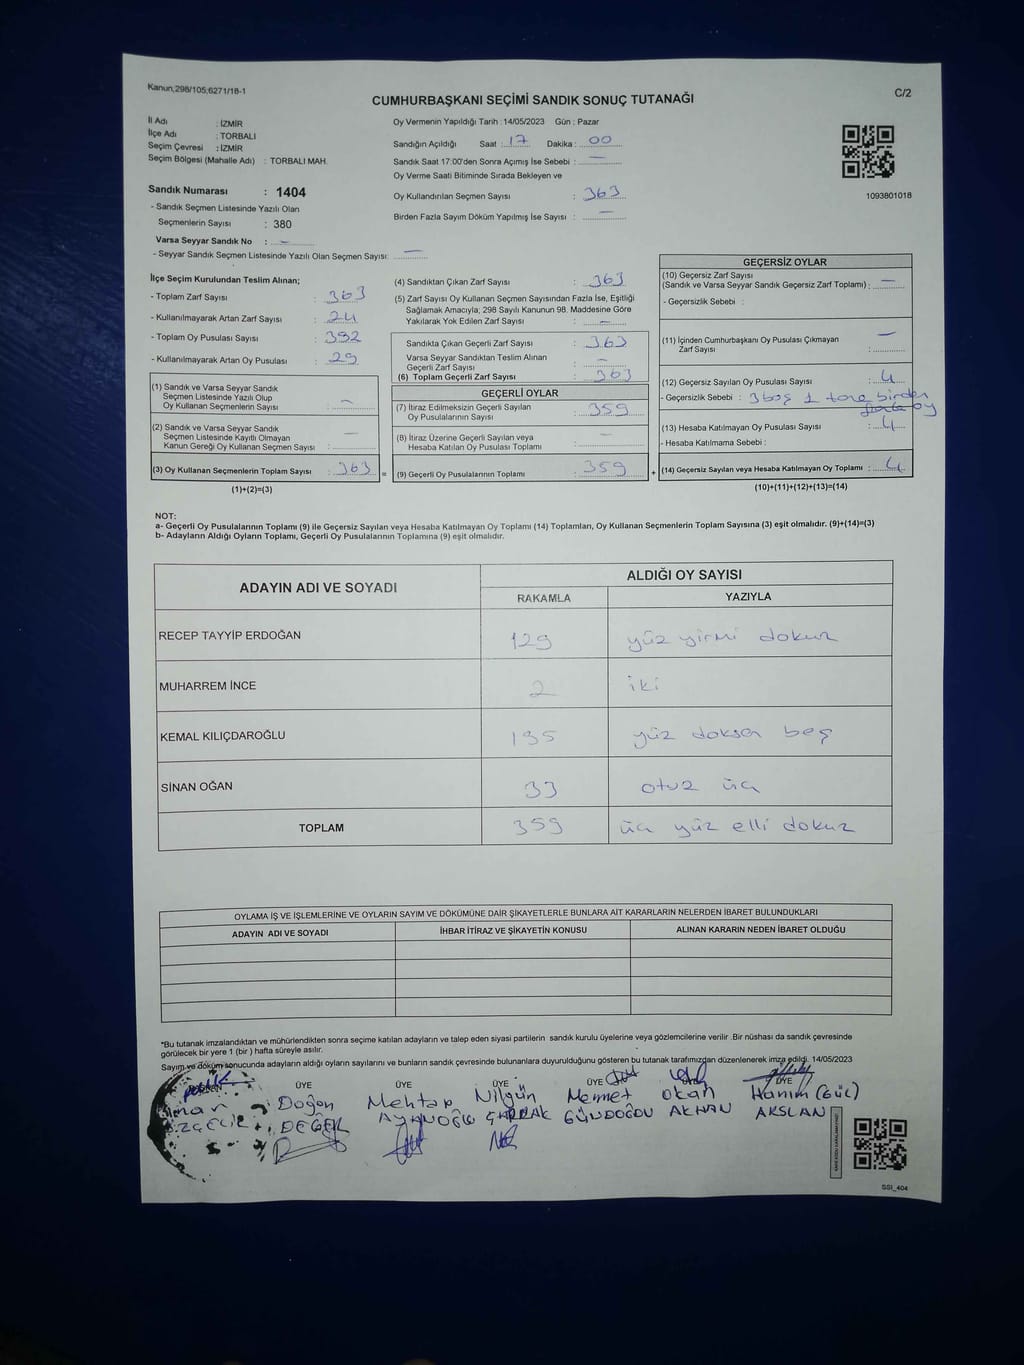 Kanun,298/105;6271/18-1
C/2
CUMHURBAŞKANI SEÇİMİ SANDIK SONUÇ TUTANAĞI
İl Adı : İZMİR
İlçe Adı : TORBALI
Seçim Çevresi : İZMİR
Seçim Bölgesi (Mahalle Adı) : TORBALI MAH.
Sandık Numarası : 1404
- Sandık Seçmen Listesinde Yazılı Olan
Seçmenlerin Sayısı : 380
Varsa Seyyar Sandık No : —
- Seyyar Sandık Seçmen Listesinde Yazılı Olan Seçmen Sayısı: —
Oy Vermenin Yapıldığı Tarih : 14/05/2023 Gün : Pazar
Sandığın Açıldığı Saat : 17 Dakika : 00
Sandık Saat 17:00'den Sonra Açımış İse Sebebi : —
Oy Verme Saati Bitiminde Sırada Bekleyen ve
Oy Kullandırılan Seçmen Sayısı : 363
Birden Fazla Sayım Döküm Yapılmış İse Sayısı : —
1093801018
İlçe Seçim Kurulundan Teslim Alınan;
- Toplam Zarf Sayısı : 363
- Kullanılmayarak Artan Zarf Sayısı : 24
- Toplam Oy Pusulası Sayısı : 392
- Kullanılmayarak Artan Oy Pusulası : 29
(1) Sandık ve Varsa Seyyar Sandık
Seçmen Listesinde Yazılı Olup
Oy Kullanan Seçmenlerin Sayısı : —
(2) Sandık ve Varsa Seyyar Sandık
Seçmen Listesinde Kayıtlı Olmayan
Kanun Gereği Oy Kullanan Seçmen Sayısı : —
(3) Oy Kullanan Seçmenlerin Toplam Sayısı : 363
(1)+(2)=(3)
(4) Sandıktan Çıkan Zarf Sayısı : 363
(5) Zarf Sayısı Oy Kullanan Seçmen Sayısından Fazla İse, Eşitliği
Sağlamak Amacıyla; 298 Sayılı Kanunun 98. Maddesine Göre
Yakılarak Yok Edilen Zarf Sayısı : —
Sandıkta Çıkan Geçerli Zarf Sayısı : 363
Varsa Seyyar Sandıktan Teslim Alınan
Geçerli Zarf Sayısı : —
(6) Toplam Geçerli Zarf Sayısı : 363
GEÇERLİ OYLAR
(7) İtiraz Edilmeksizin Geçerli Sayılan
Oy Pusulalarının Sayısı : 359
(8) İtiraz Üzerine Geçerli Sayılan veya
Hesaba Katılan Oy Pusulası Toplamı : —
= (9) Geçerli Oy Pusulalarının Toplamı : 359
GEÇERSİZ OYLAR
(10) Geçersiz Zarf Sayısı
(Sandık ve Varsa Seyyar Sandık Geçersiz Zarf Toplamı) : —
- Geçersizlik Sebebi :
(11) İçinden Cumhurbaşkanı Oy Pusulası Çıkmayan
Zarf Sayısı : —
(12) Geçersiz Sayılan Oy Pusulası Sayısı : 4
- Geçersizlik Sebebi : 3 boş 1 tane birden
fazla oy
(13) Hesaba Katılmayan Oy Pusulası Sayısı : 4
- Hesaba Katılmama Sebebi :
+ (14) Geçersiz Sayılan veya Hesaba Katılmayan Oy Toplamı : 4
(10)+(11)+(12)+(13)=(14)
NOT:
a- Geçerli Oy Pusulalarının Toplamı (9) ile Geçersiz Sayılan veya Hesaba Katılmayan Oy Toplamı (14) Toplamları, Oy Kullanan Seçmenlerin Toplam Sayısına (3) eşit olmalıdır. (9)+(14)=(3)
b- Adayların Aldığı Oyların Toplamı, Geçerli Oy Pusulalarının Toplamına (9) eşit olmalıdır.
ADAYIN ADI VE SOYADI
ALDIĞI OY SAYISI
RAKAMLA YAZIYLA
RECEP TAYYİP ERDOĞAN 129 yüz yirmi dokuz
MUHARREM İNCE 2 iki
KEMAL KILIÇDAROĞLU 195 yüz doksan beş
SİNAN OĞAN 33 otuz üç
TOPLAM 359 üç yüz elli dokuz
OYLAMA İŞ VE İŞLEMLERİNE VE OYLARIN SAYIM VE DÖKÜMÜNE DAİR ŞİKAYETLERLE BUNLARA AİT KARARLARIN NELERDEN İBARET BULUNDUKLARI
ADAYIN ADI VE SOYADI İHBAR İTİRAZ VE ŞİKAYETİN KONUSU ALINAN KARARIN NEDEN İBARET OLDUĞU
*Bu tutanak imzalandıktan ve mühürlendikten sonra seçime katılan adayların ve talep eden siyasi partilerin sandık kurulu üyelerine veya gözlemcilerine verilir .Bir nüshası da sandık çevresinde
görülecek bir yere 1 (bir ) hafta süreyle asılır.
Sayım ve döküm sonucunda adayların aldığı oyların sayılarını ve bunların sandık çevresinde bulunanlara duyurulduğunu gösteren bu tutanak tarafımızdan düzenlenerek imza edildi. 14/05/2023
ÜYE ÜYE ÜYE ÜYE ÜYE
Doğan Mehtap Nilgün Mehmet Okan Hanım (Gül)
DEĞER GÜNDOĞDU AKHAN AKSLAN
SSI_404